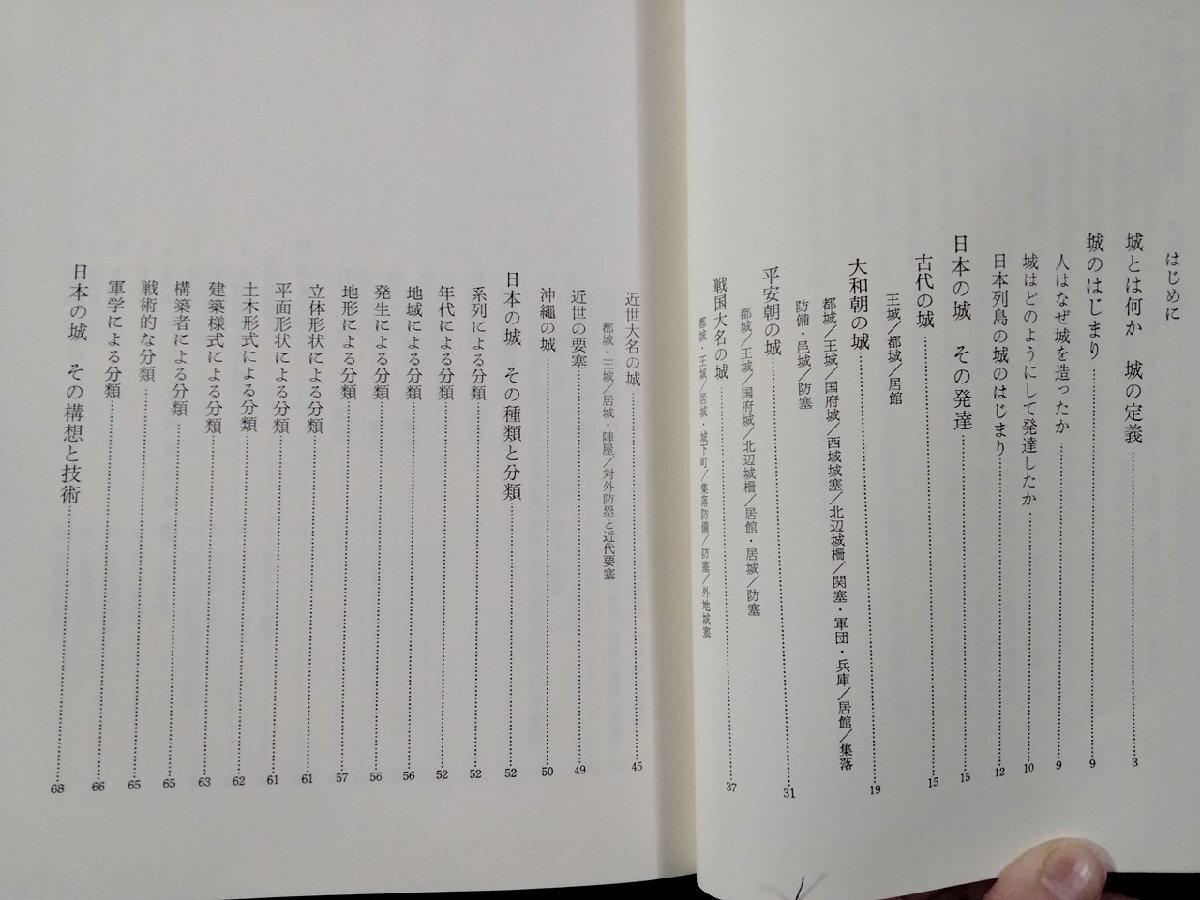 はじめに
城とは何か　城の定義……3
城のはじまり……9
人はなぜ城を造ったか……9
城はどのようにして発達したか……10
日本列島の城のはじまり……12
日本の城　その発達……15
古代の城……15
王城／都城／居館
大和朝の城……19
都城／王城／国府城／西域城塞／北辺城柵／関塞・軍団・兵庫／居館／集落
防備・邑城／防塞
平安朝の城……31
都城／王城／国府城／北辺城柵／居館・居城／防塞
戦国大名の城……37
都城・王城／居城・城下町／集落防備／防塞／外地城塞
近世大名の城……45
都城・王城／居城・陣屋／対外防塁と近代要塞
近世の要塞……49
沖縄の城……50
日本の城　その種類と分類……52
系列による分類……52
年代による分類……52
地域による分類……56
発生による分類……56
地形による分類……57
立体形状による分類……61
平面形状による分類……61
土木形式による分類……62
建築様式による分類……63
構築者による分類……65
戦術的な分類……65
軍学による分類……66
日本の城　その構想と技術……68